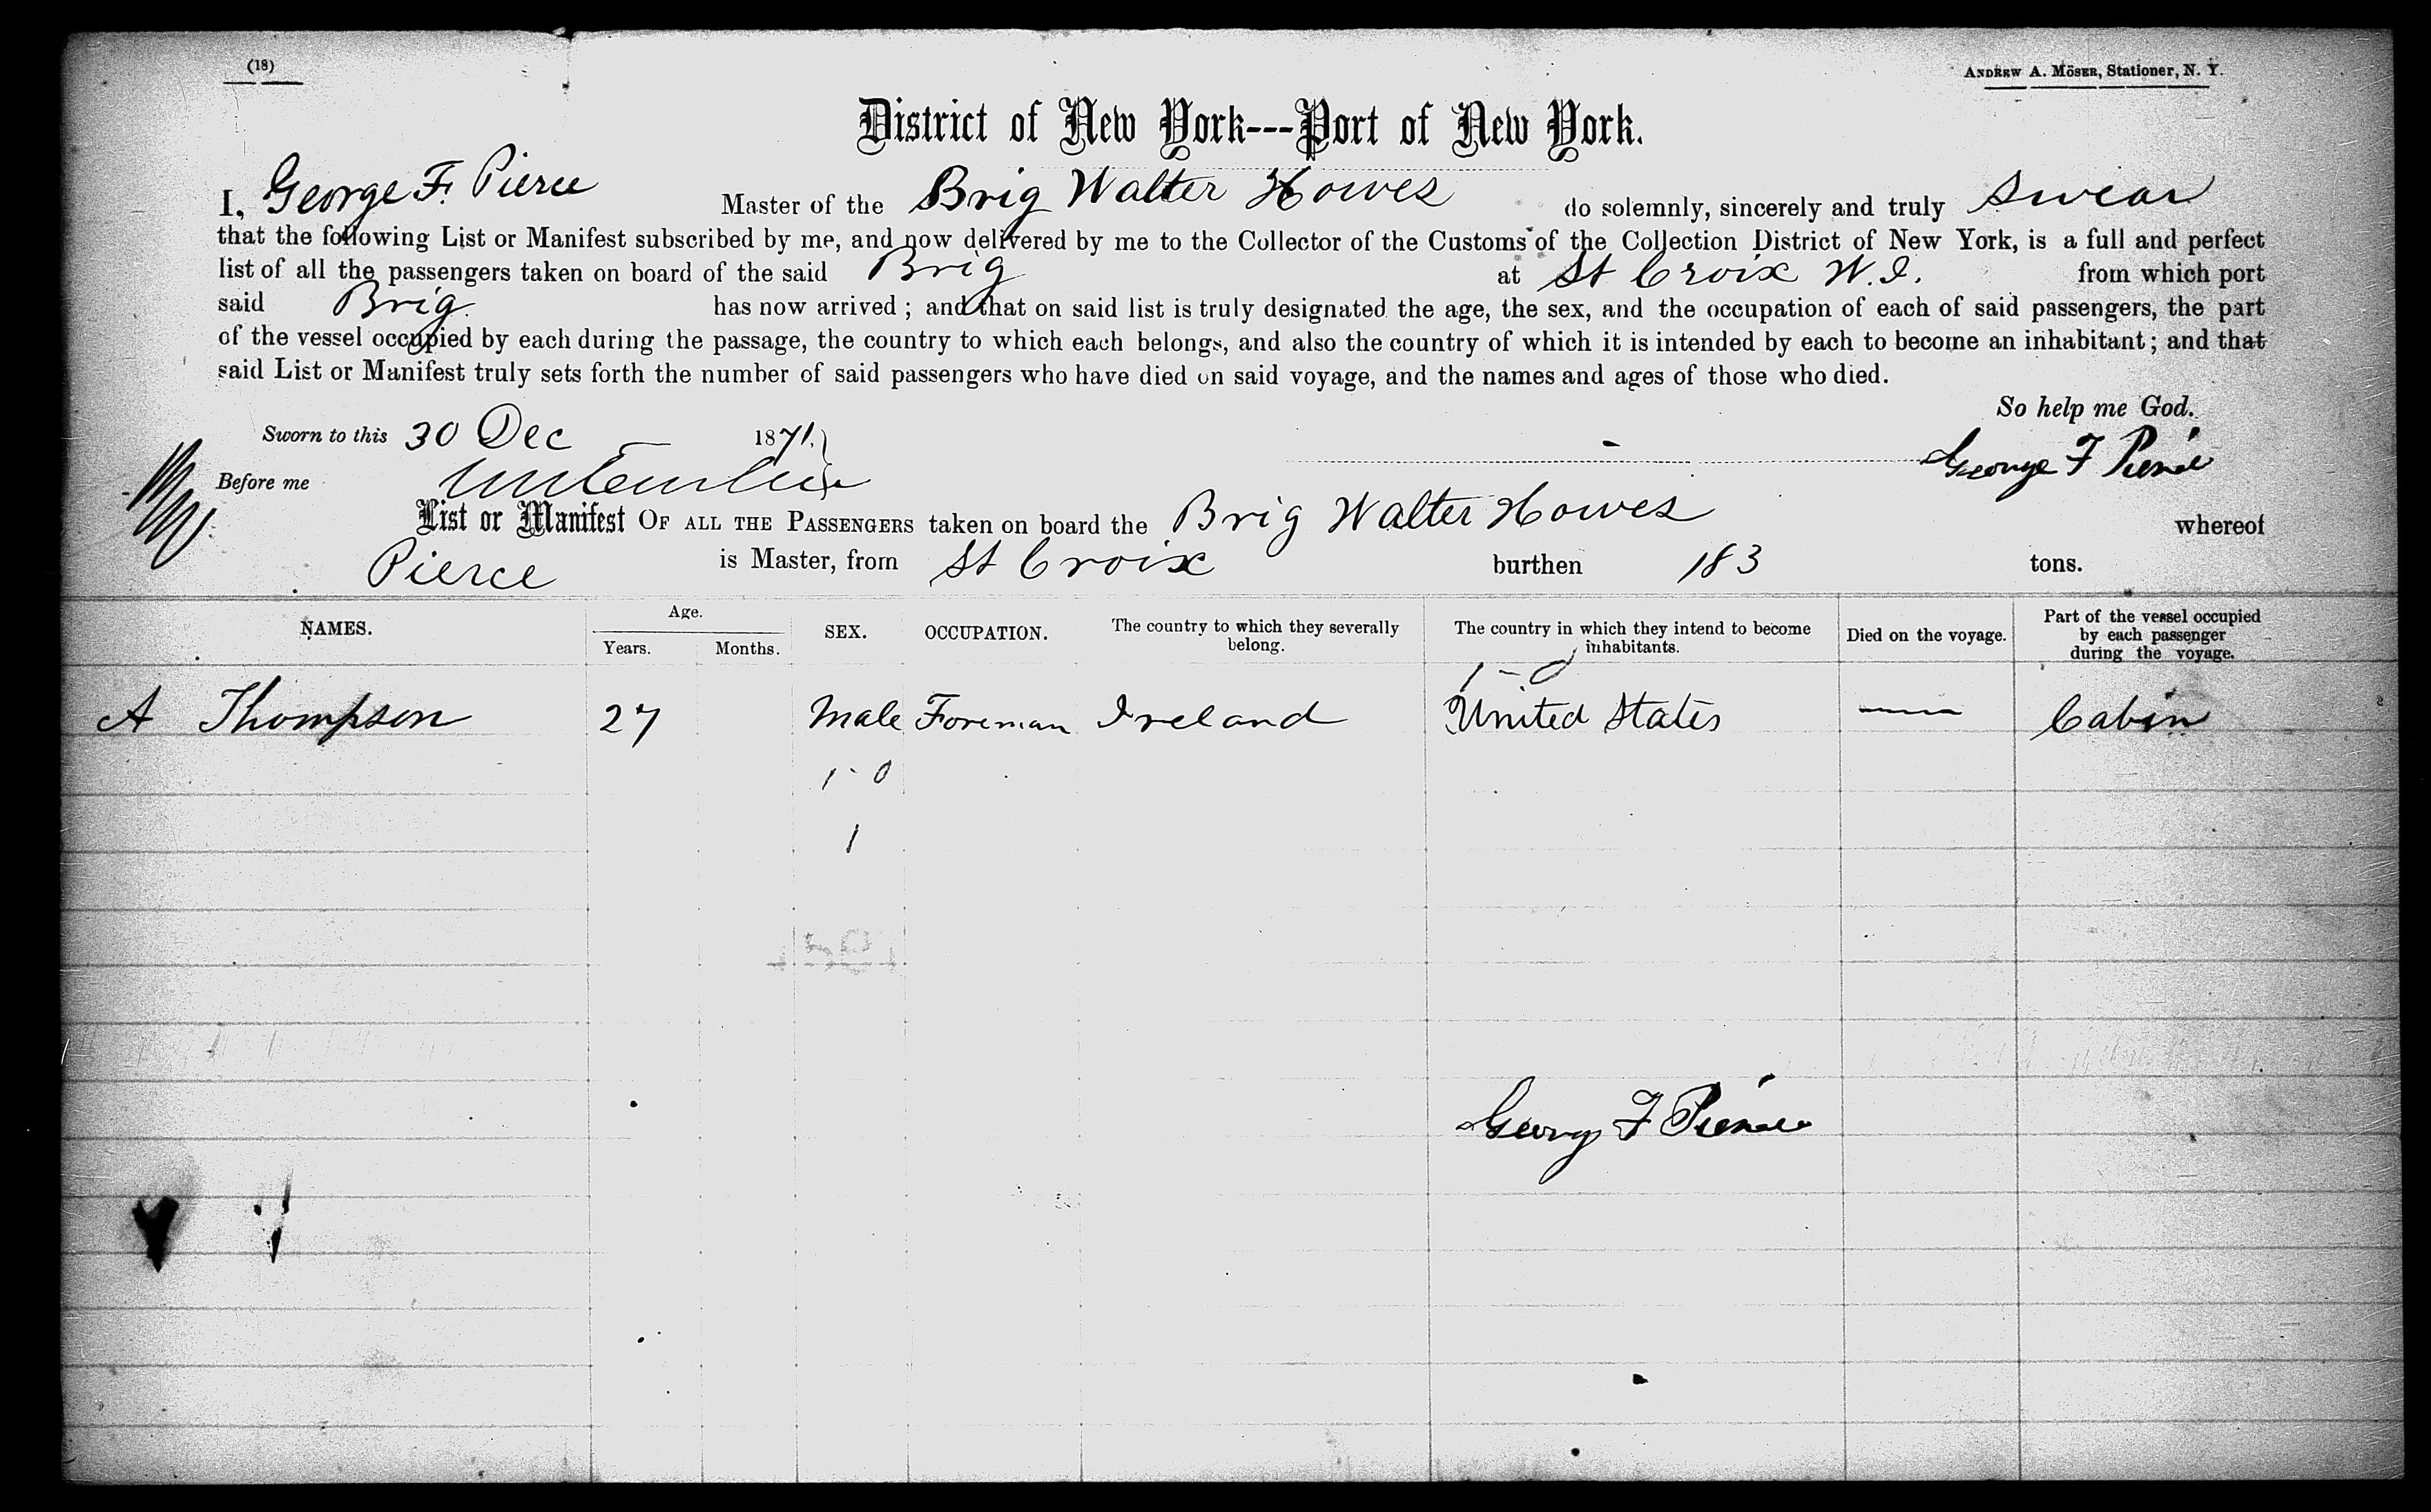 (18)
ANDREW A. MÖSER, Stationer, N. Y.
District of New York---Port of New York.
I, George F. Pierce Master of the Brig Walter Howes do solemnly, sincerely and truly swear
that the following List or Manifest subscribed by me, and now delivered by me to the Collector of the Customs of the Collection District of New York, is a full and perfect
list of all the passengers taken on board of the said Brig at St Croix W.I. from which port
said Brig has now arrived ; and that on said list is truly designated the age, the sex, and the occupation of each of said passengers, the part
of the vessel occupied by each during the passage, the country to which each belongs, and also the country of which it is intended by each to become an inhabitant ; and that
said List or Manifest truly sets forth the number of said passengers who have died on said voyage, and the names and ages of those who died.
So help me God.
Sworn to this 30 Dec 1871.
George F Pierce
Before me
List or Manifest OF ALL THE PASSENGERS taken on board the Brig Walter Howes whereof
Pierce is Master, from St Croix burthen 183 tons.
NAMES. Age. Years. Months. SEX. OCCUPATION. The country to which they severally belong. The country in which they intend to become inhabitants. Died on the voyage. Part of the vessel occupied by each passenger during the voyage.
1 - 0
A Thompson 27 Male Foreman Ireland United States — Cabin
1 - 0
1
George F Pierce